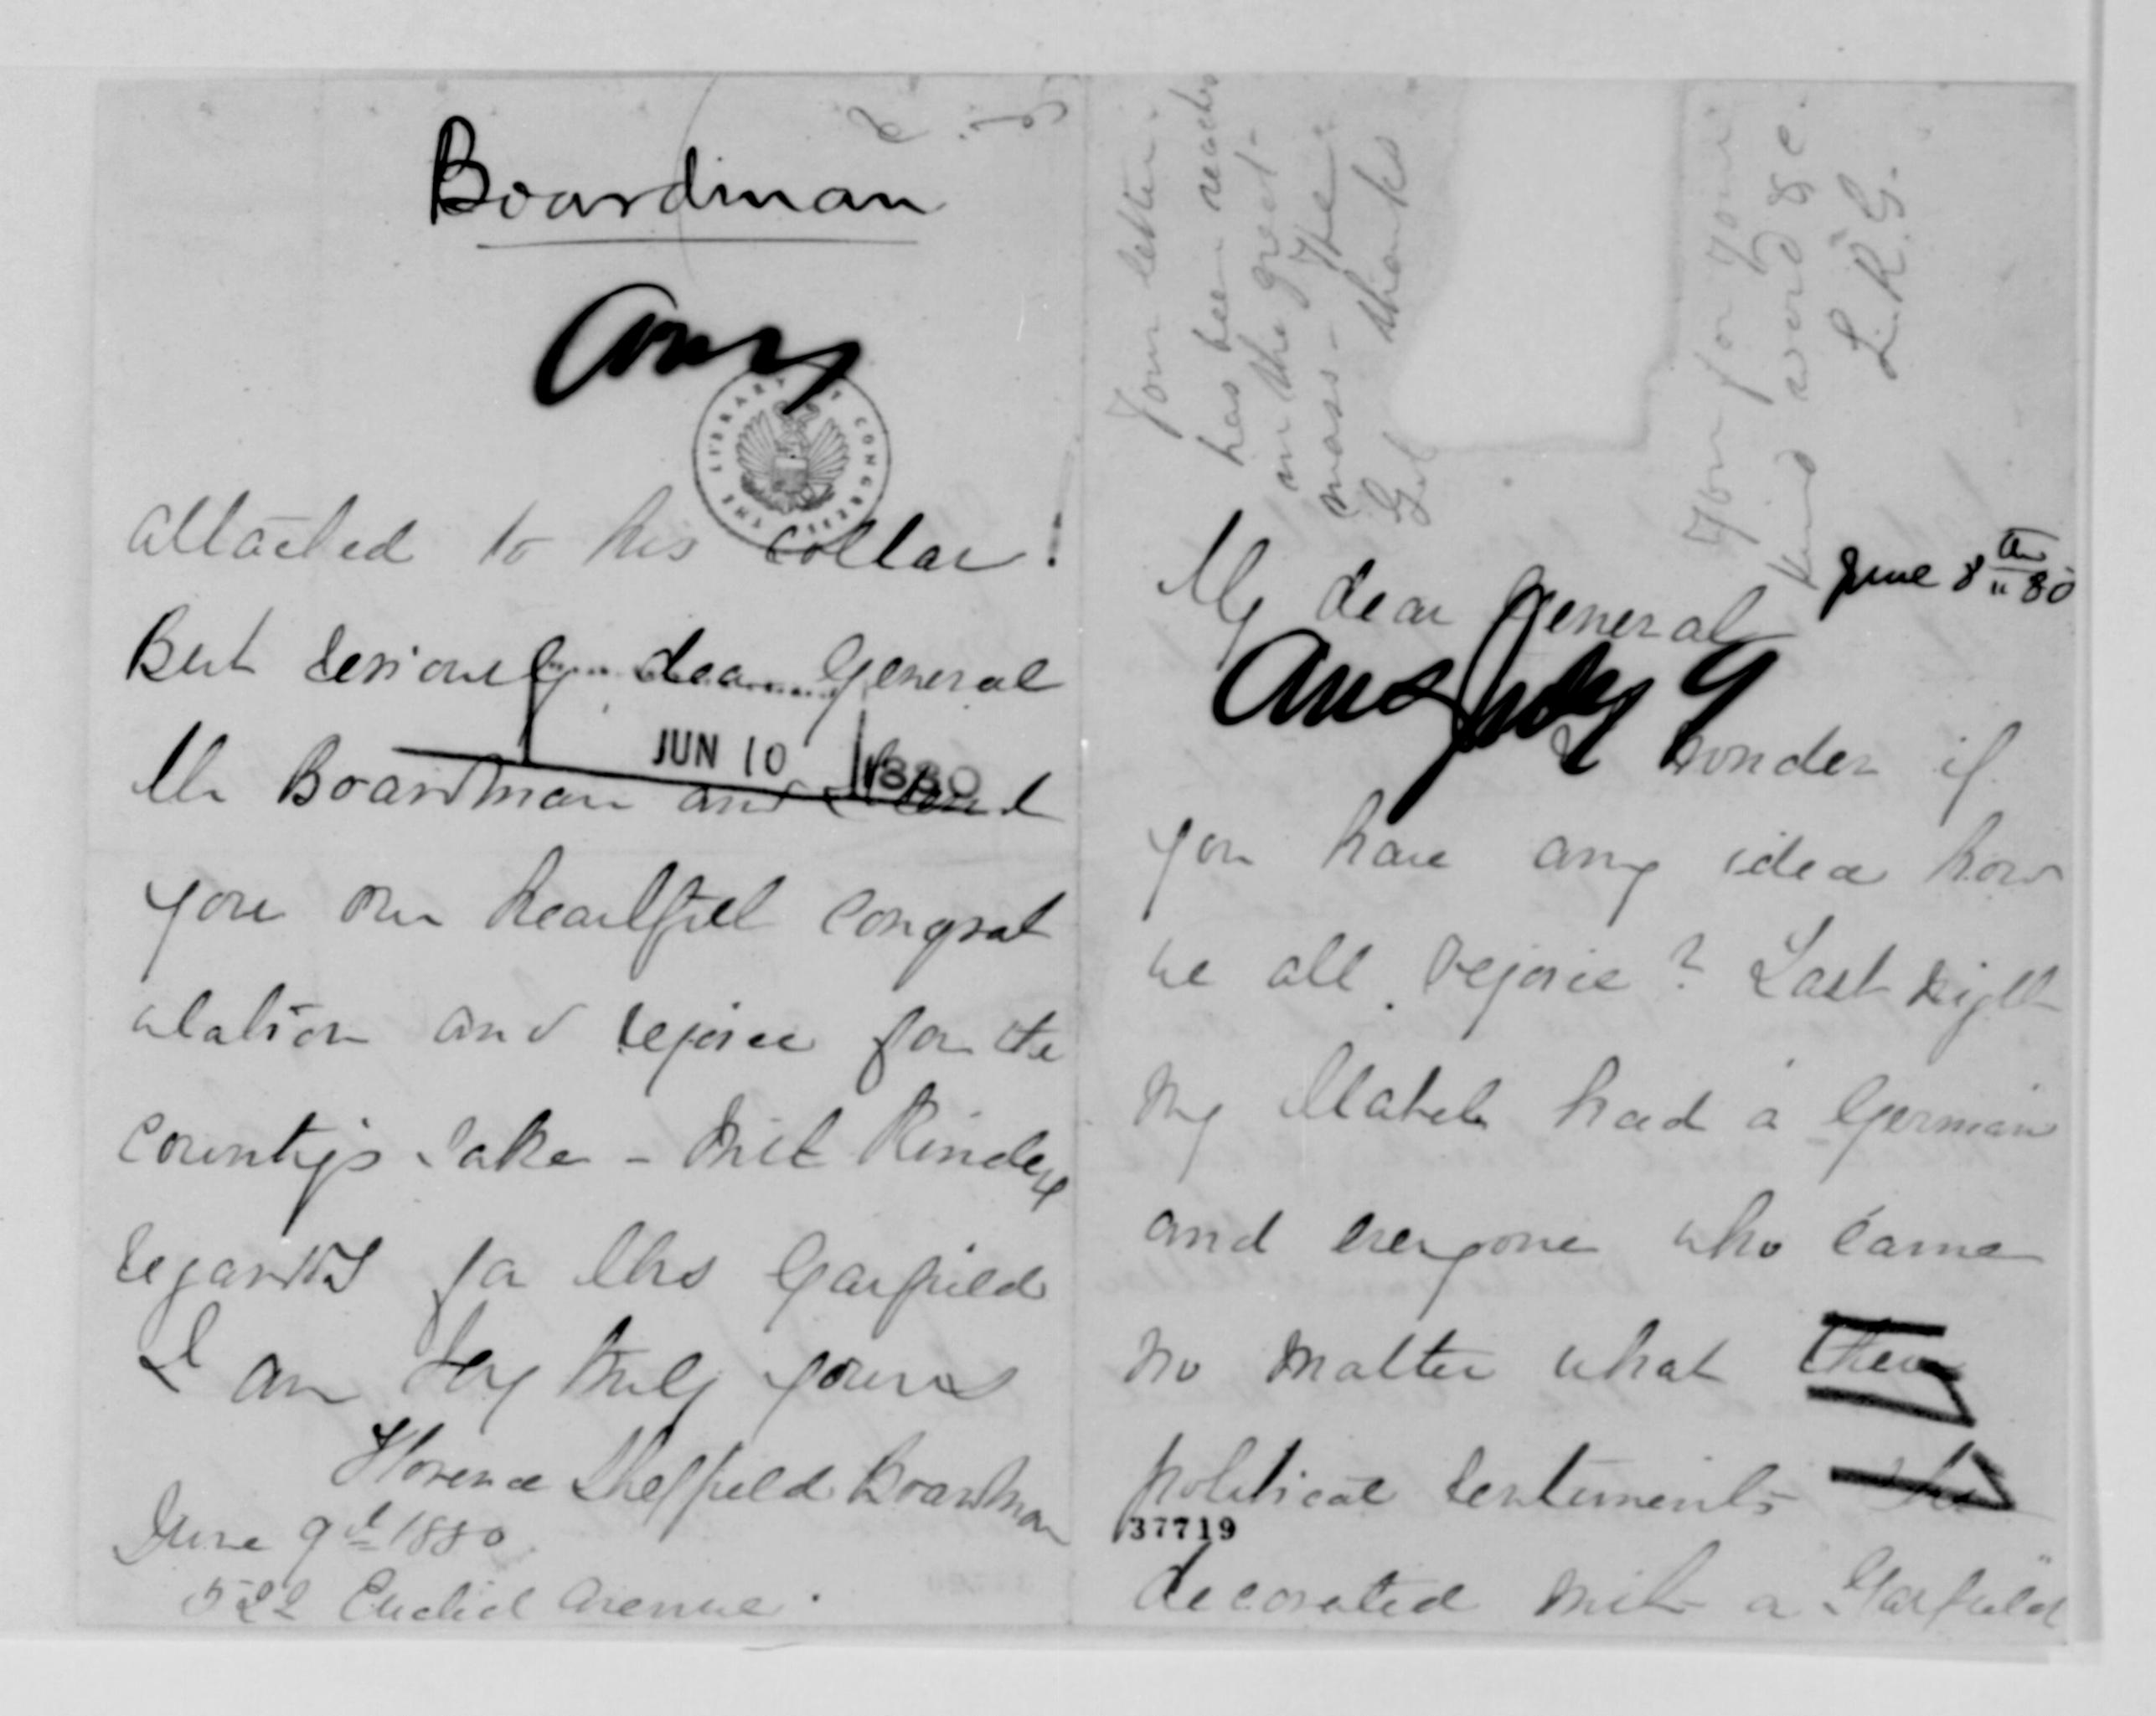 Boardman
attached to his collar!
But seriously dear General
Mr Boardman and I send
JUN 10 1880
you our heartfelt congrat
ulation and rejoice for the
country's sake - with kindest
regards for Mrs Garfield
I am very truly yours
Florence Sheffield Boardman
June 9th 1880
522 Euclid Avenue.
THE LIBRARY OF CONGRESS
Your letter
has been reached
in the great
mass -
thanks
for your
kind word &c.
L.R.G.
June 8th 80
My dear General
Ans July 9
I wonder if
you have any idea how
we all rejoice? Last night
my Mabel had a German
and everyone who came
no matter what their
political sentiments
37719
decorated with a "Garfield"